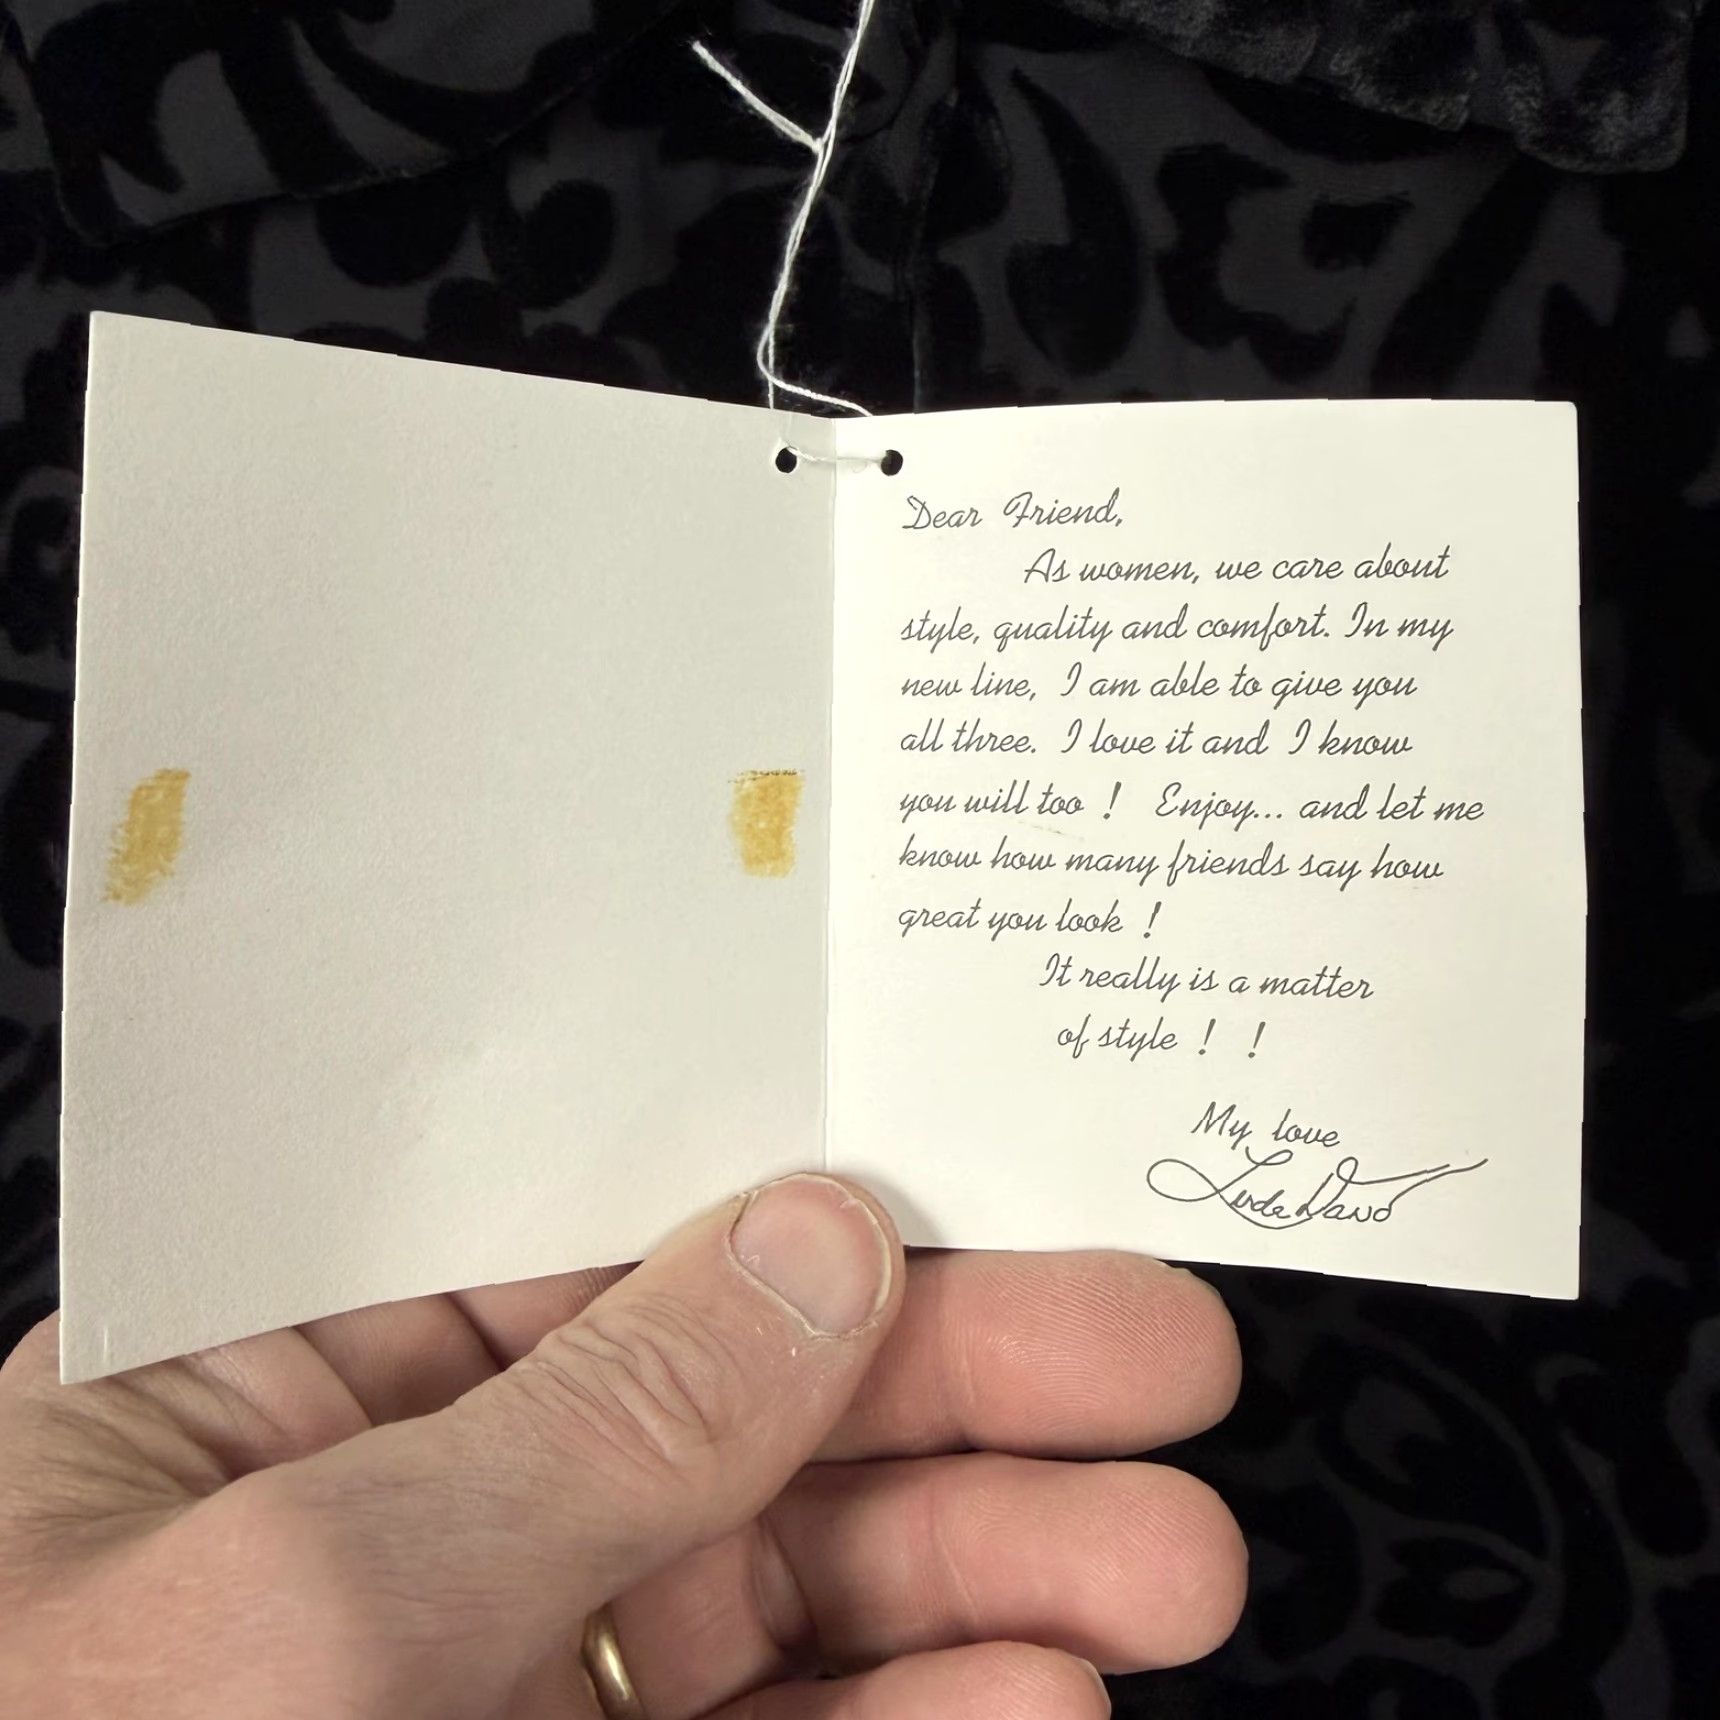 Dear Friend,
As women, we care about
style, quality and comfort. In my
new line, I am able to give you
all three. I love it and I know
you will too ! Enjoy... and let me
know how many friends say how
great you look !
It really is a matter
of style ! !
My love
Linda Dano